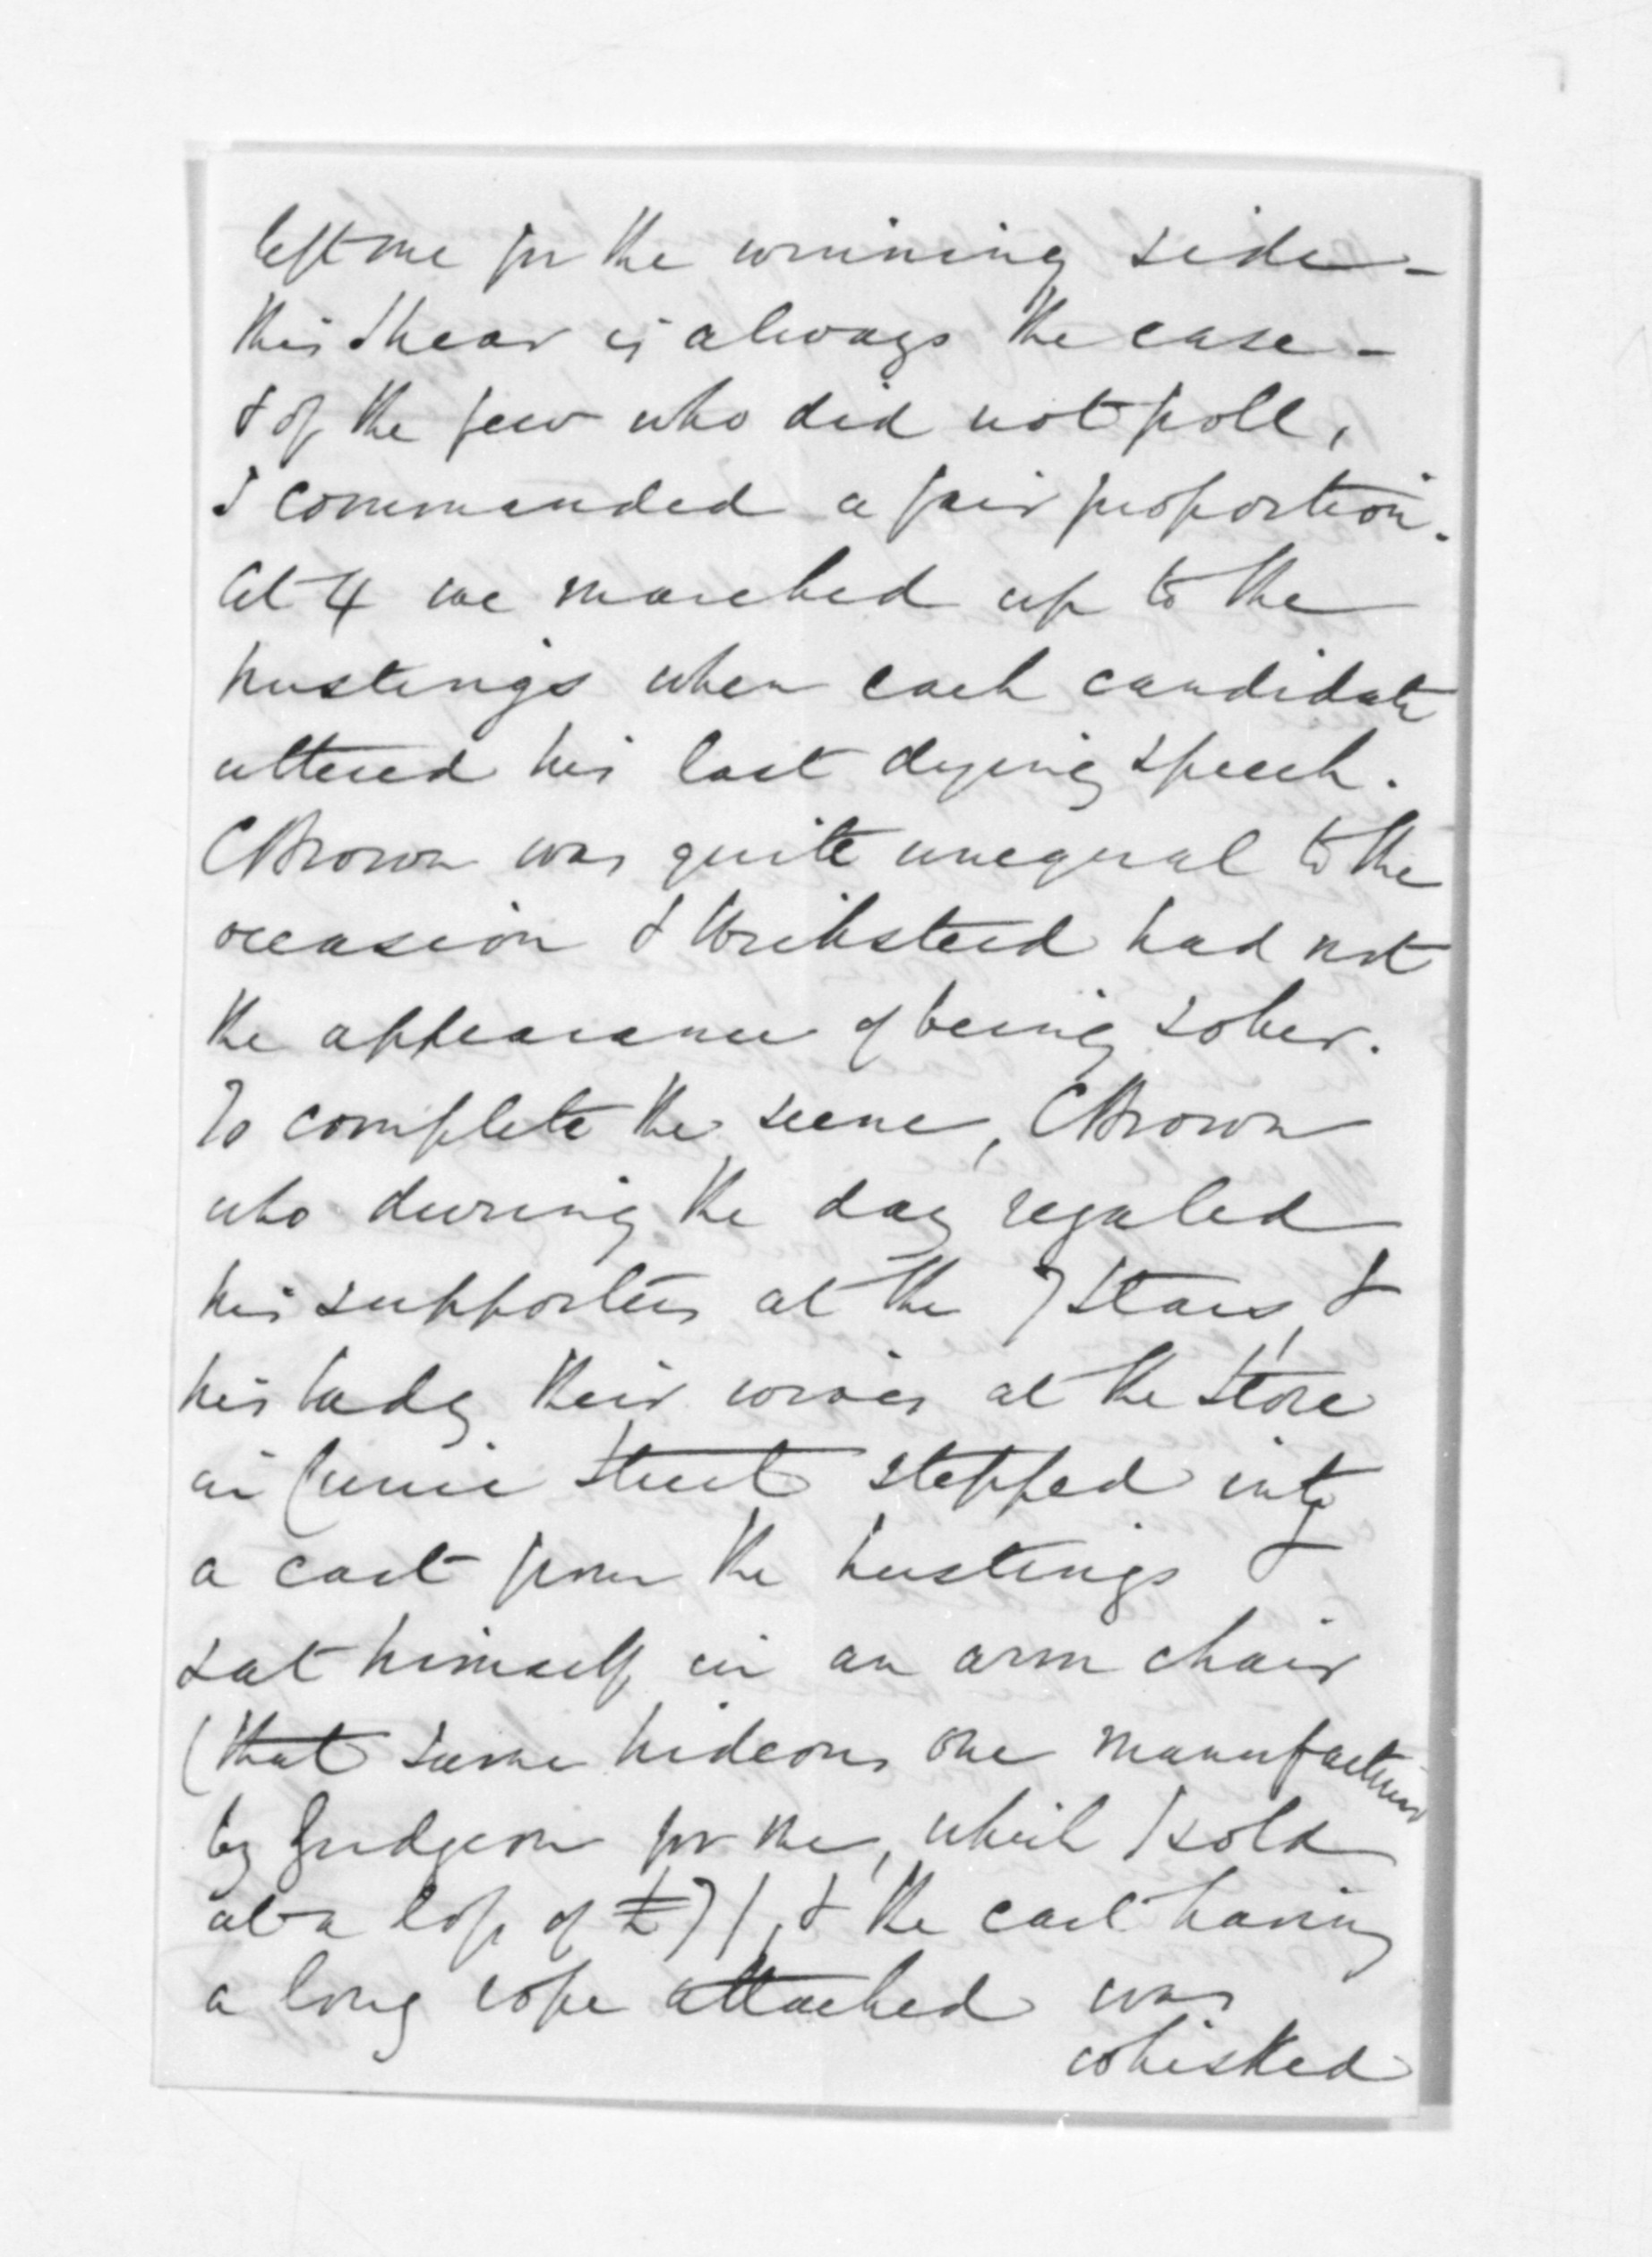 left me for the winning side -
this I hear is always the case -
& of the few who did not poll,
I commanded a fair proportion.
At 4 we marched up to the
hustings when each candidate
uttered his last dying speech.
CBrown was quite unequal to the
occasion & Wicksteed had not
the appearance of being sober.
To complete the scene, CBrown
who during the day regaled
his supporters at the 7 Stars, &
his lady their wives at the Store
in Currie Street stepped into
a cart from the hustings &
sat himself in an arm chair
(that same hideous one manufactured
by Gudgeon for me, which I sold
at a loss of £7), & the cart having
a long rope attached was
whisked